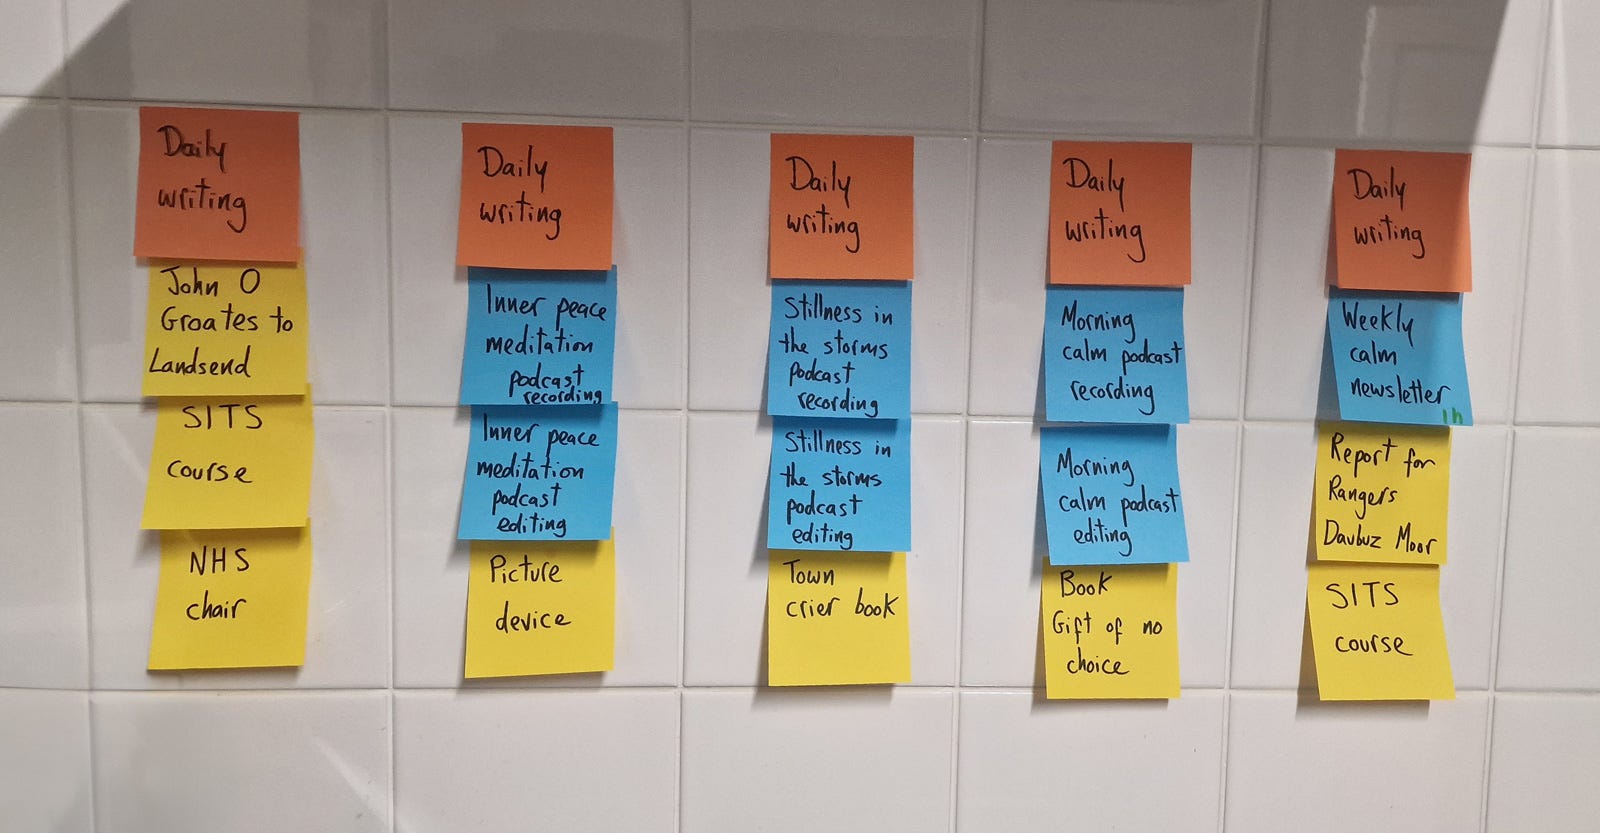 Daily
writing
John O
Groates to
Landsend
SITS
course
NHS
chair
Daily
writing
Inner peace
meditation
podcast
recording
Inner peace
meditation
podcast
editing
Picture
device
Daily
writing
Stillness in
the storms
podcast
recording
Stillness in
the storms
podcast
editing
Town
crier book
Daily
writing
Morning
calm podcast
recording
Morning
calm podcast
editing
Book
Gift of no
choice
Daily
writing
Weekly
calm
newsletter
1h
Report for
Rangers
Daubuz Moor
SITS
course